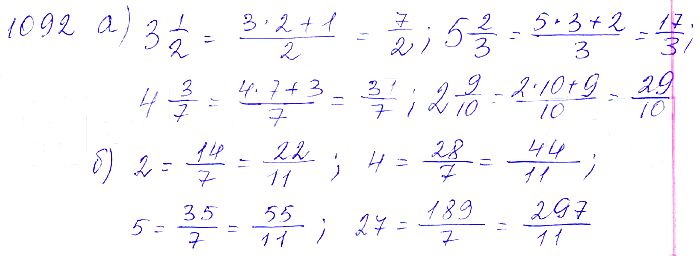 1092 а) 3 1/2 = (3·2+1)/2 = 7/2; 5 2/3 = (5·3+2)/3 = 17/3;
4 3/7 = (4·7+3)/7 = 31/7; 2 9/10 = (2·10+9)/10 = 29/10
б) 2 = 14/7 = 22/11; 4 = 28/7 = 44/11;
5 = 35/7 = 55/11; 27 = 189/7 = 297/11